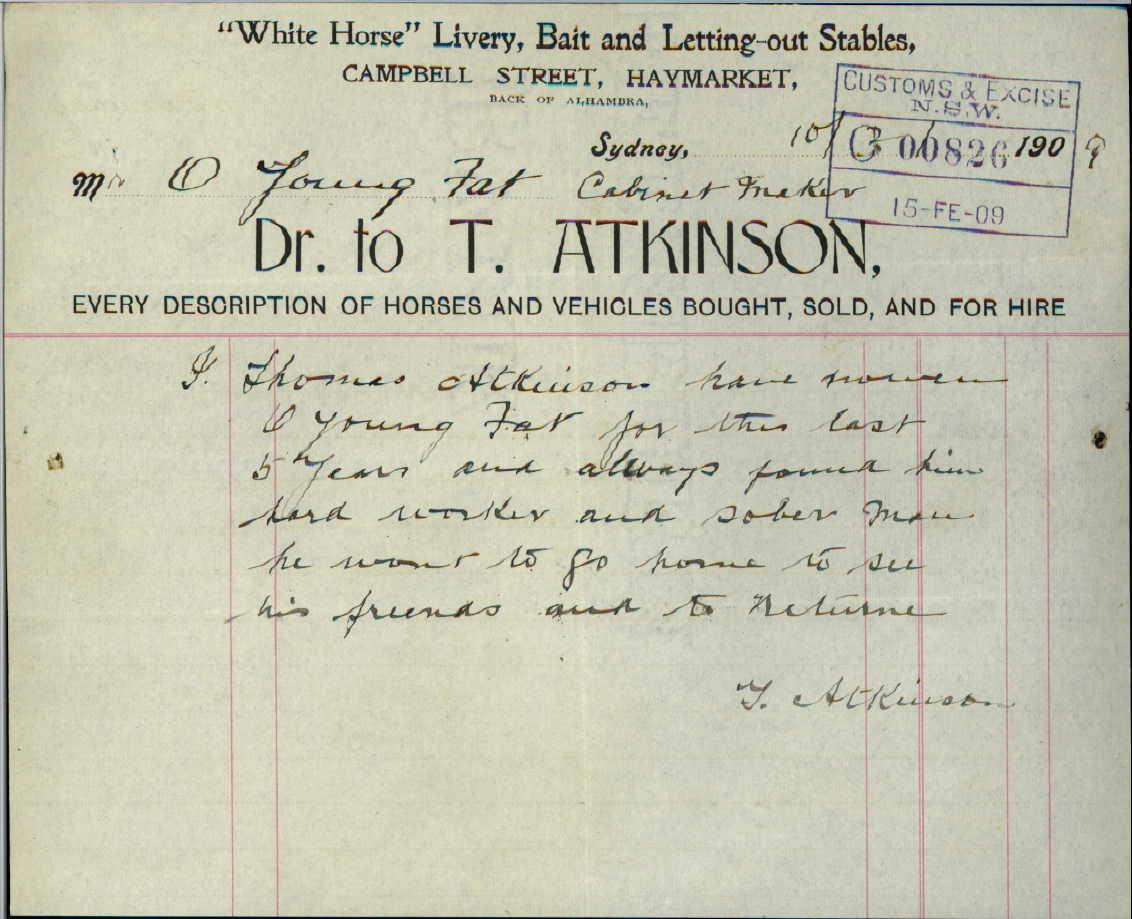 "White Horse" Livery, Bait and Letting-out Stables,
CAMPBELL STREET, HAYMARKET,
BACK OF ALHAMBRA,
CUSTOMS & EXCISE
N.S.W.
C 00826
15-FE-09
Sydney, 10/2/1909
Mr O Young Fat Cabinet Maker
Dr. to T. ATKINSON,
EVERY DESCRIPTION OF HORSES AND VEHICLES BOUGHT, SOLD, AND FOR HIRE
I. Thomas Atkinson have nowen
O Young Fat for this last
5 Years and always found him
hard worker and sober Man
he wont to go home to see
his friends and to Returne
T. Atkinson